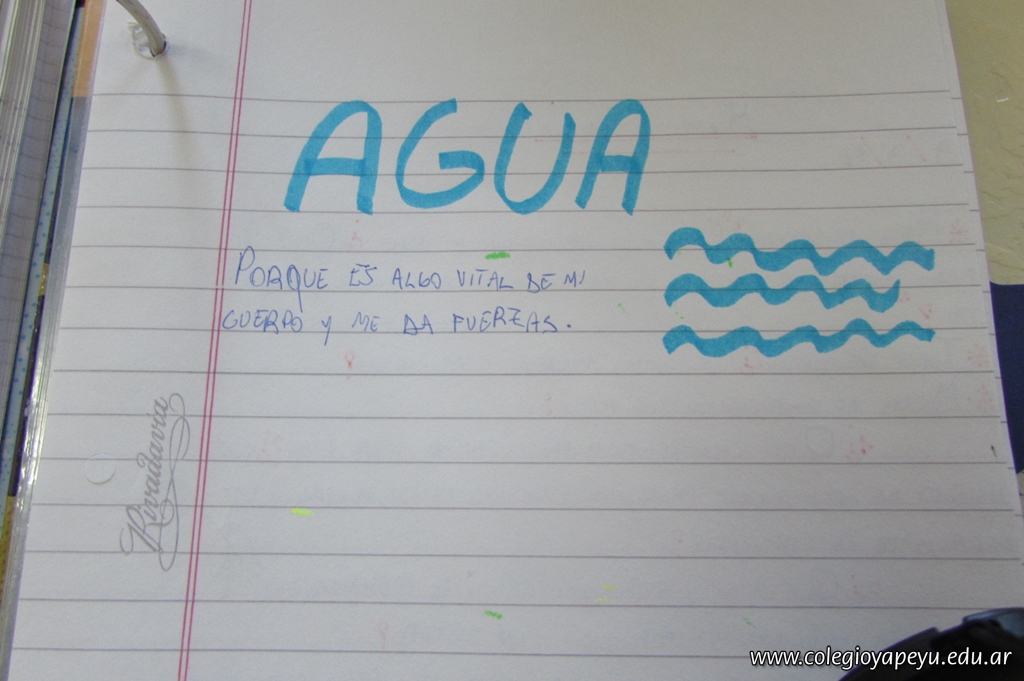 AGUA
PORQUE ES ALGO VITAL DE MI
CUERPO Y ME DA FUERZAS.
Rivadavia
www.colegioyapeyu.edu.ar